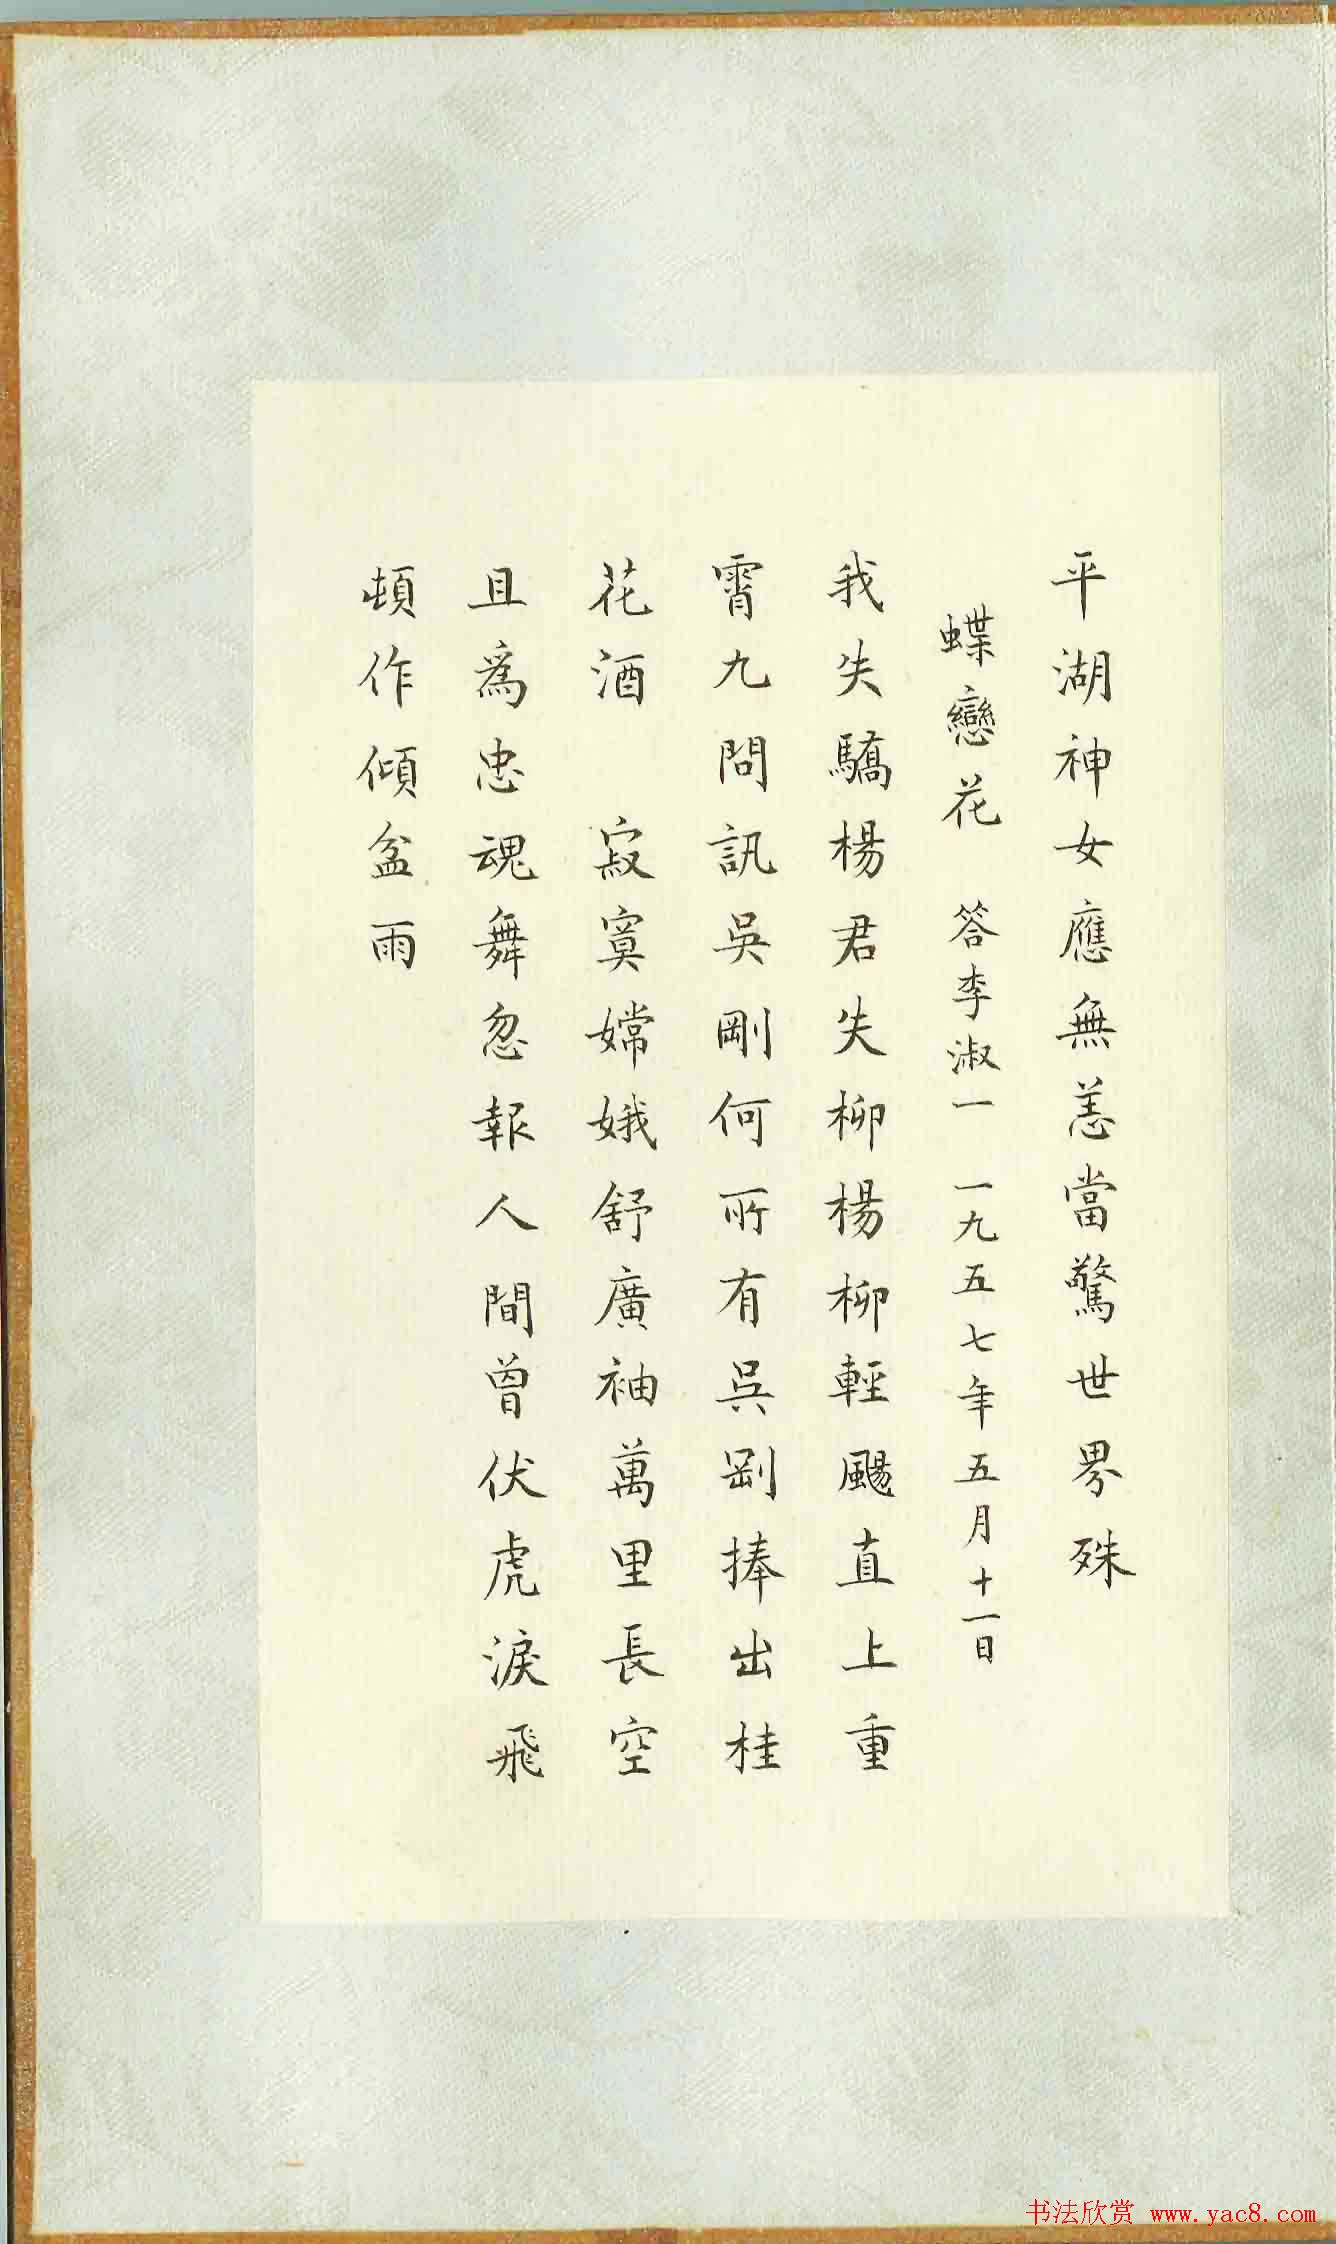 平湖神女應無恙當驚世界殊
蝶戀花 答李淑一 一九五七年五月十一日
我失驕楊君失柳楊柳輕颺直上重
霄九問訊吳剛何所有吳剛捧出桂
花酒 寂寞嫦娥舒廣袖萬里長空
且爲忠魂舞忽報人間曾伏虎淚飛
頓作傾盆雨
书法欣赏 www.yac8.com